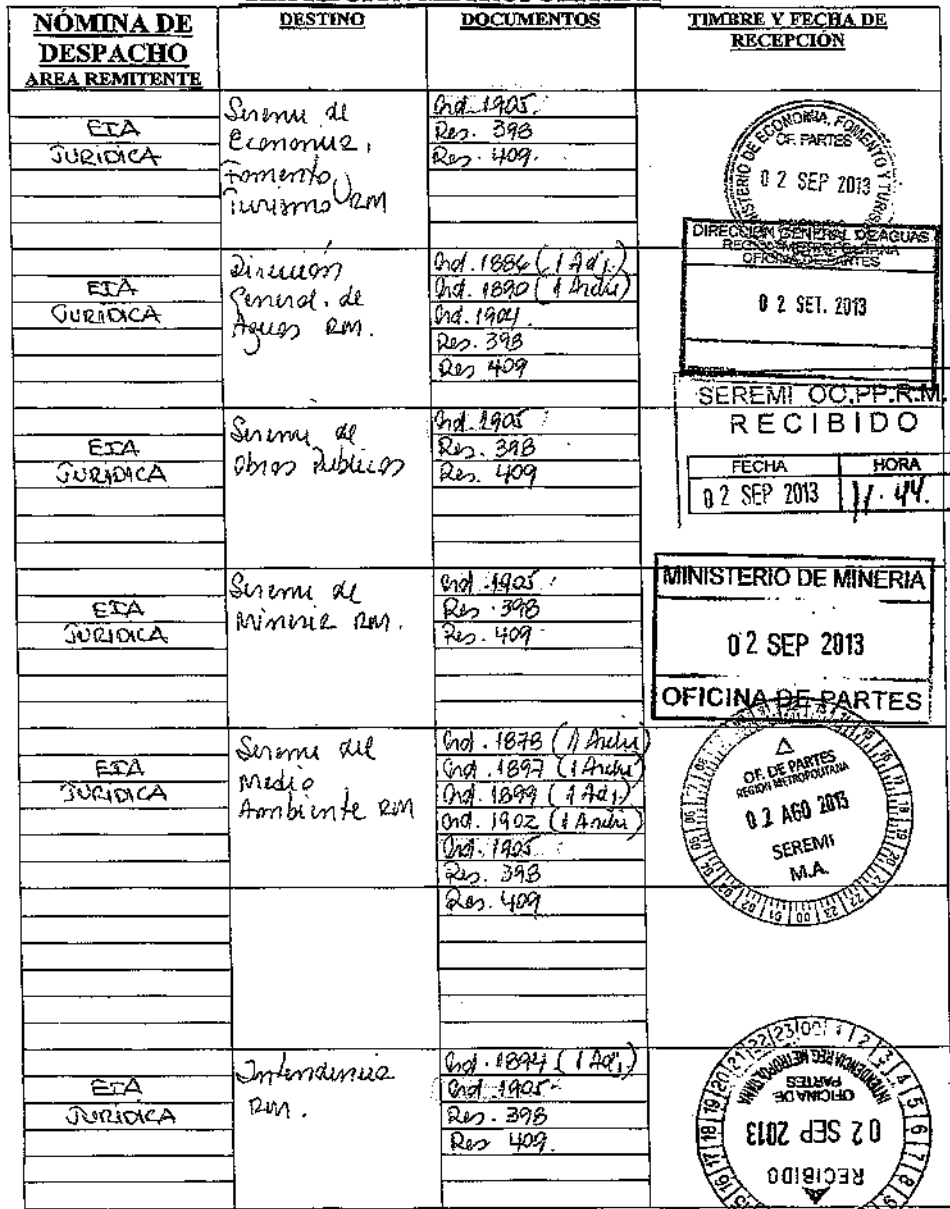 NÓMINA DE
DESPACHO
AREA REMITENTE
DESTINO
DOCUMENTOS
TIMBRE Y FECHA DE
RECEPCIÓN
EIA
JURIDICA
Seremi de
Economia,
Fomento,
Turismo RM
Ord. 1905
Res. 398
Res. 409.
MINISTERIO DE ECONOMIA, FOMENTO Y TURISMO
OF. PARTES
02 SEP 2013
EIA
JURIDICA
Dirección
General. de
Aguas RM.
Ord. 1886 (1 Adj.)
Ord. 1890 (1 Anexo)
Ord. 1904.
Res. 398
Res 409
DIRECCIÓN GENERAL DE AGUAS
REGION METROPOLITANA
OFICINA DE PARTES
02 SET. 2013
EIA
JURIDICA
Seremi de
Obras Publicas
Ord. 1905
Res. 398
Res. 409
SEREMI OO.PP.R.M.
RECIBIDO
FECHA HORA
02 SEP 2013 11.44.
EIA
JURIDICA
Seremi de
Mineria RM.
Ord. 1905
Res. 398
Res. 409
MINISTERIO DE MINERIA
02 SEP 2013
OFICINA DE PARTES
EIA
JURIDICA
Seremi del
Medio
Ambiente RM
Ord. 1878
Ord. 1897
Ord. 1899 (1 Adj.)
Ord. 1902
Ord. 1905
Res. 398
Res. 409
OF. DE PARTES
REGION METROPOLITANA
02 AGO 2013
SEREMI
M.A.
EIA
JURIDICA
Intendencia
RM.
Ord. 1894 (1 Adj.)
Ord. 1905
Res. 398
Res 409.
INTENDENCIA REG METROPOLITANA
OFICINA DE
PARTES
02 SEP 2013
RECIBIDO